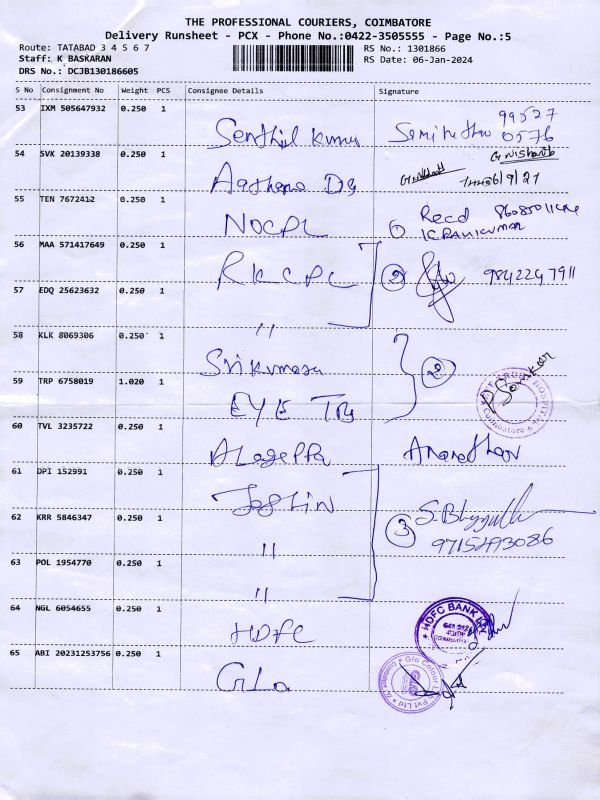 THE PROFESSIONAL COURIERS, COIMBATORE
Delivery Runsheet - PCX - Phone No.:0422-3505555 - Page No.:5
Route: TATABAD 3 4 5 6 7
RS No.: 1301866
Staff: K BASKARAN
RS Date: 06-Jan-2024
DRS No.: DCJB130186605
S No Consignment No Weight PCS Consignee Details Signature
53 IXM 505647932 0.250 1 Senthil Kumar 99527
0576
54 SVK 20139338 0.250 1 G.Nishanth
55 TEN 7672412 0.250 1 NOCPL 1 Recd
56 MAA 571417649 0.250 1 RKCPL 2 9842247911
57 EDQ 25623632 0.250 1 "
58 KLK 8069306 0.250 1 2
59 TRP 6758019 1.020 1 EYE
60 TVL 3235722 0.250 1 Alageppa
61 DPI 152991 0.250 1 Joslin
62 KRR 5846347 0.250 1 " 3 9715293086
63 POL 1954770 0.250 1 "
64 NGL 6054655 0.250 1 HDFC HDFC BANK
65 ABI 20231253756 0.250 1 Glo Glo Colour
Pvt Ltd